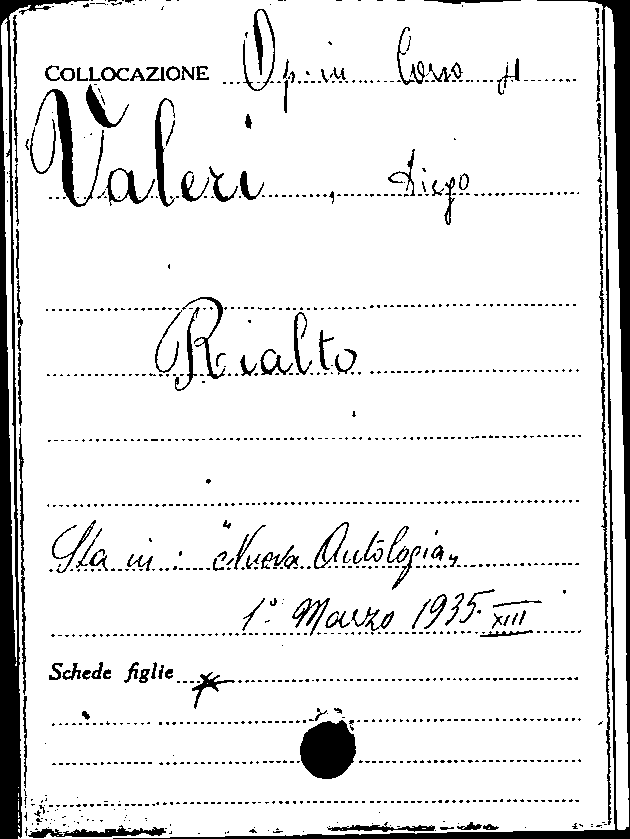 COLLOCAZIONE Op. in Corso
Valeri, Diego
Rialto
Sta in: "Nuova Antologia"
1° Marzo 1935. XIII
Schede figlie